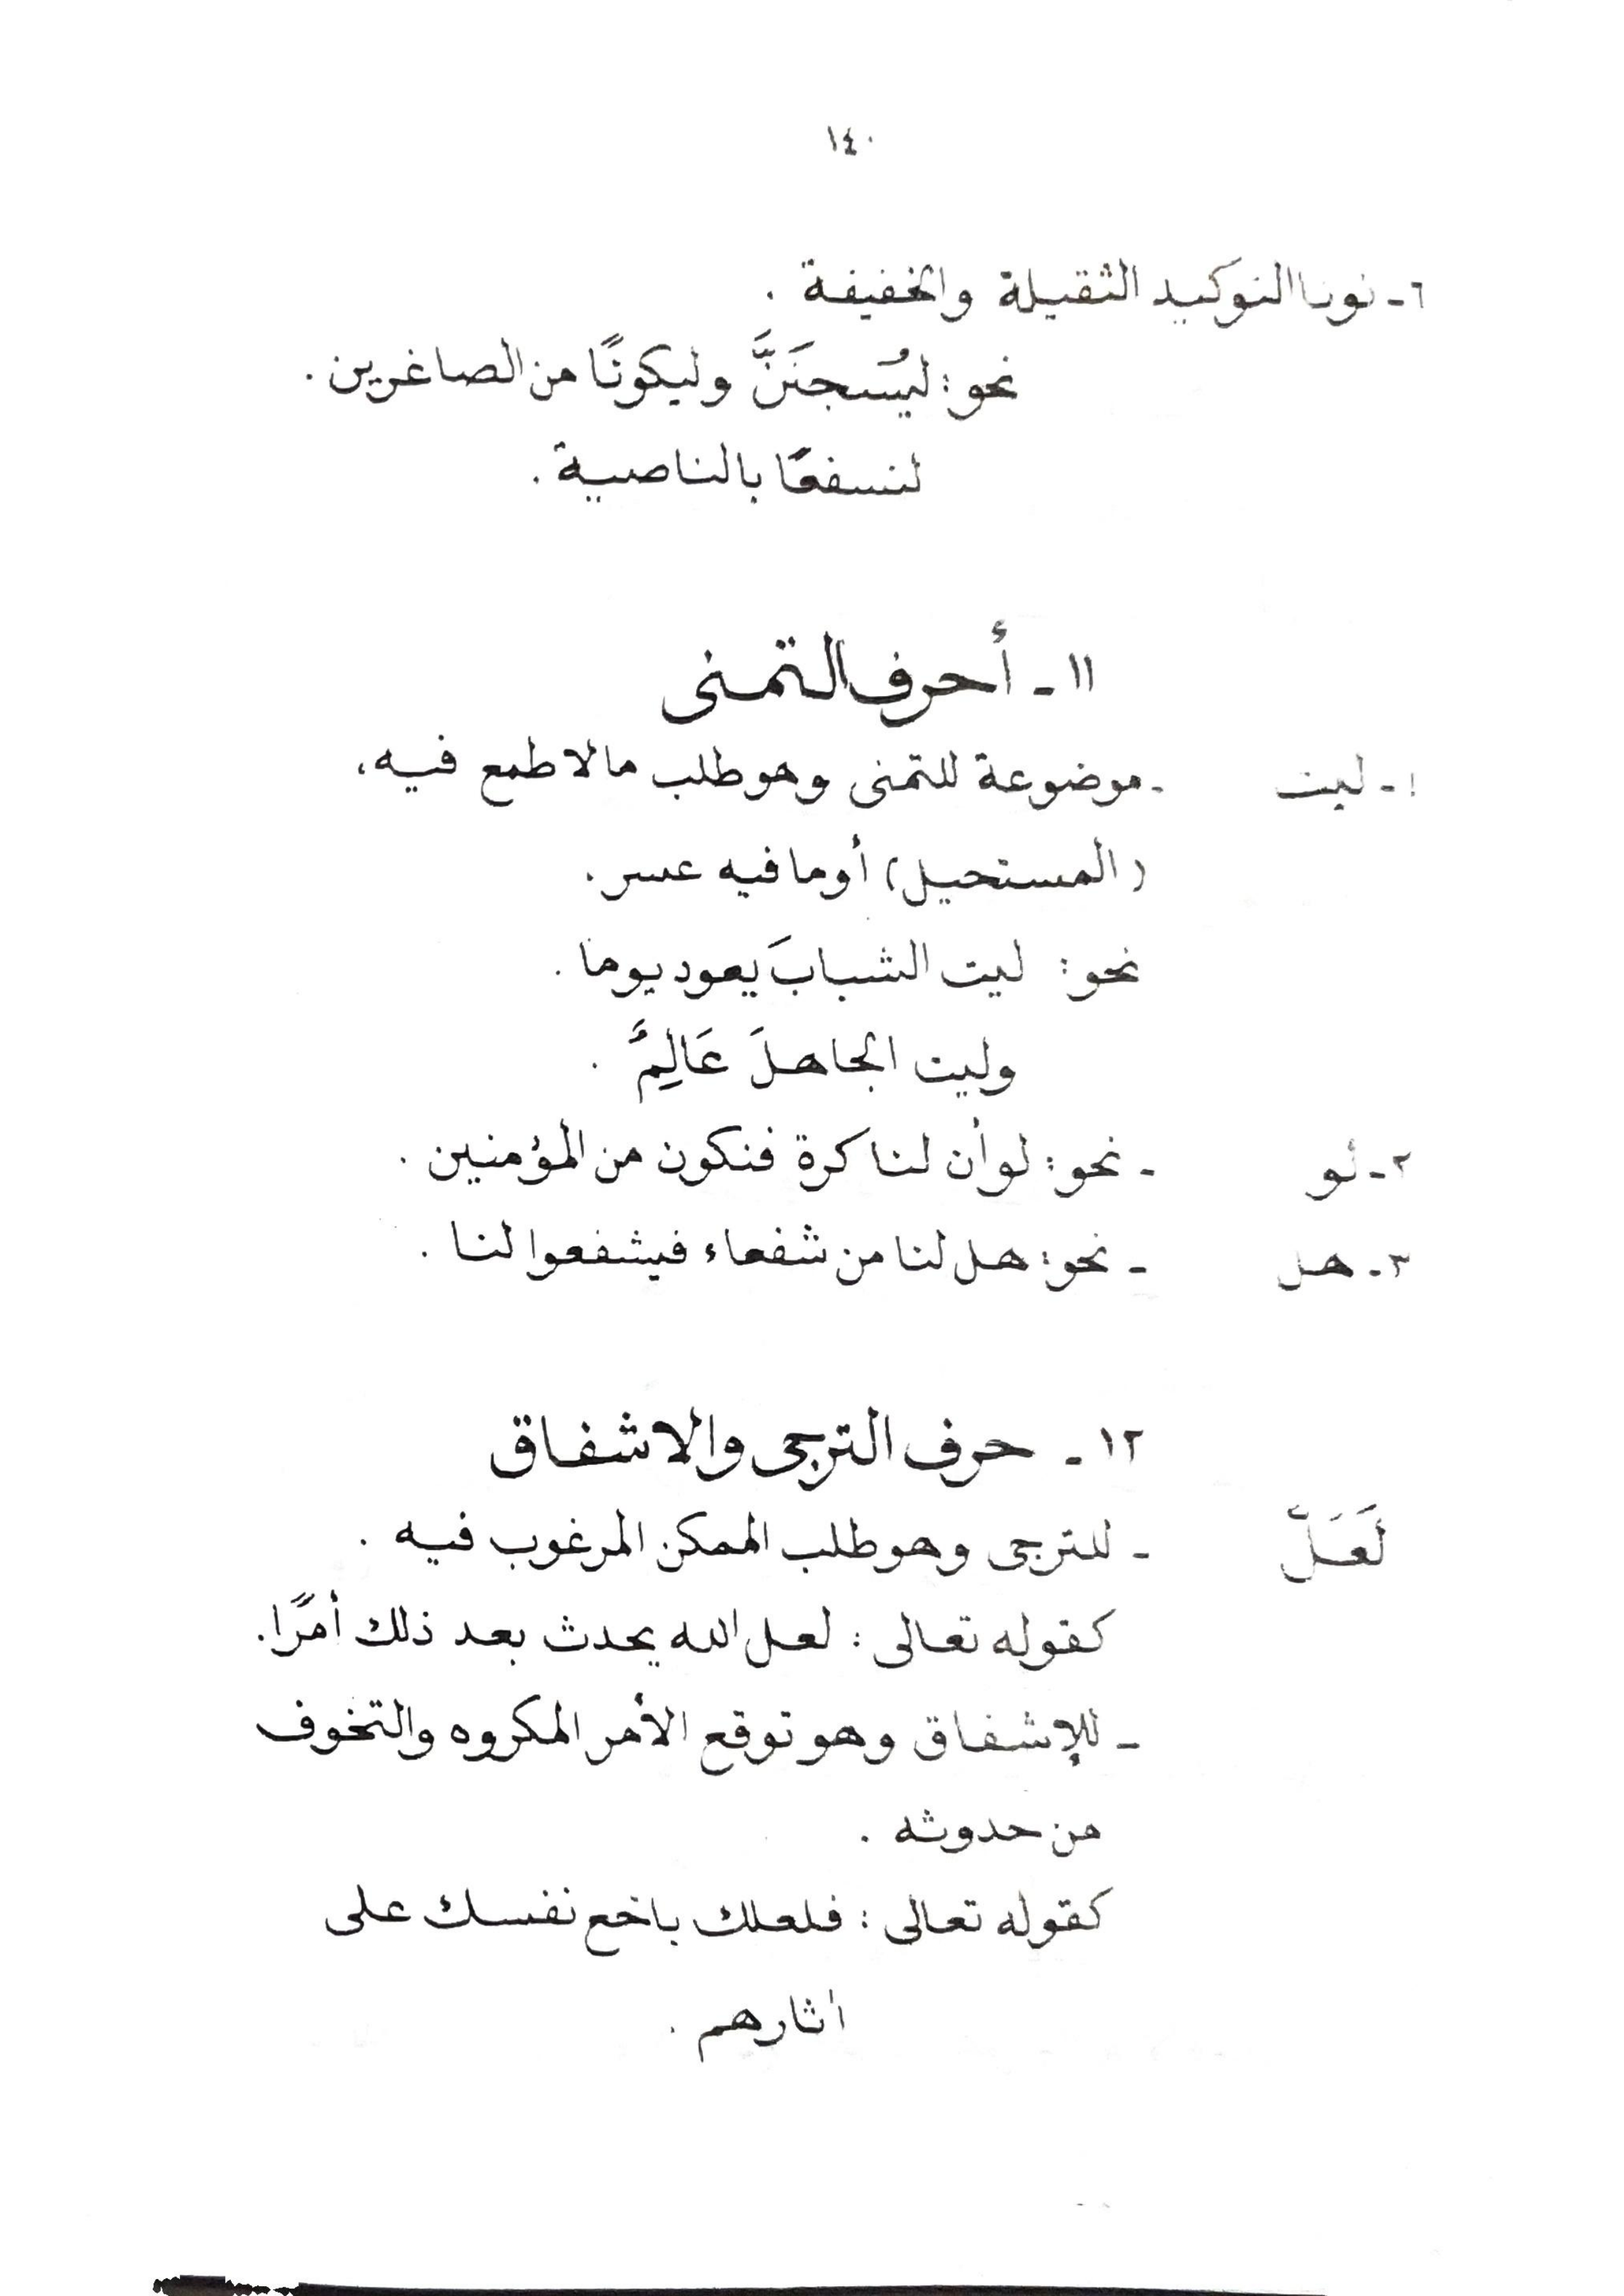 ١٤٠
٦ - نونا التوكيد الثقيلة والخفيفة .
نحو : ليُسجنَنَّ وليكونًا من الصاغرين .
لنسفعًا بالناصية .
١١ - أحرف التمنى
١ - ليت - موضوعة للتمنى وهو طلب مالا طمع فيه ،
( المستحيل ) أو ما فيه عسر .
نحو : ليت الشبابَ يعود يوما .
وليت الجاهلَ عَالِمٌ .
٢ - لو - نحو : لو أن لنا كرة فنكون من المؤمنين .
٣ - هل - نحو : هل لنا من شفعاء فيشفعوا لنا .
١٢ - حرف الترجى والاشفاق
لَعَلّ - للترجى وهو طلب الممكن المرغوب فيه .
كقوله تعالى : لعل الله يحدث بعد ذلك أمرًا .
- للإشفاق وهو توقع الأمر المكروه والتخوف
من حدوثه .
كقوله تعالى : فلعلك باخع نفسك على
اثارهم .